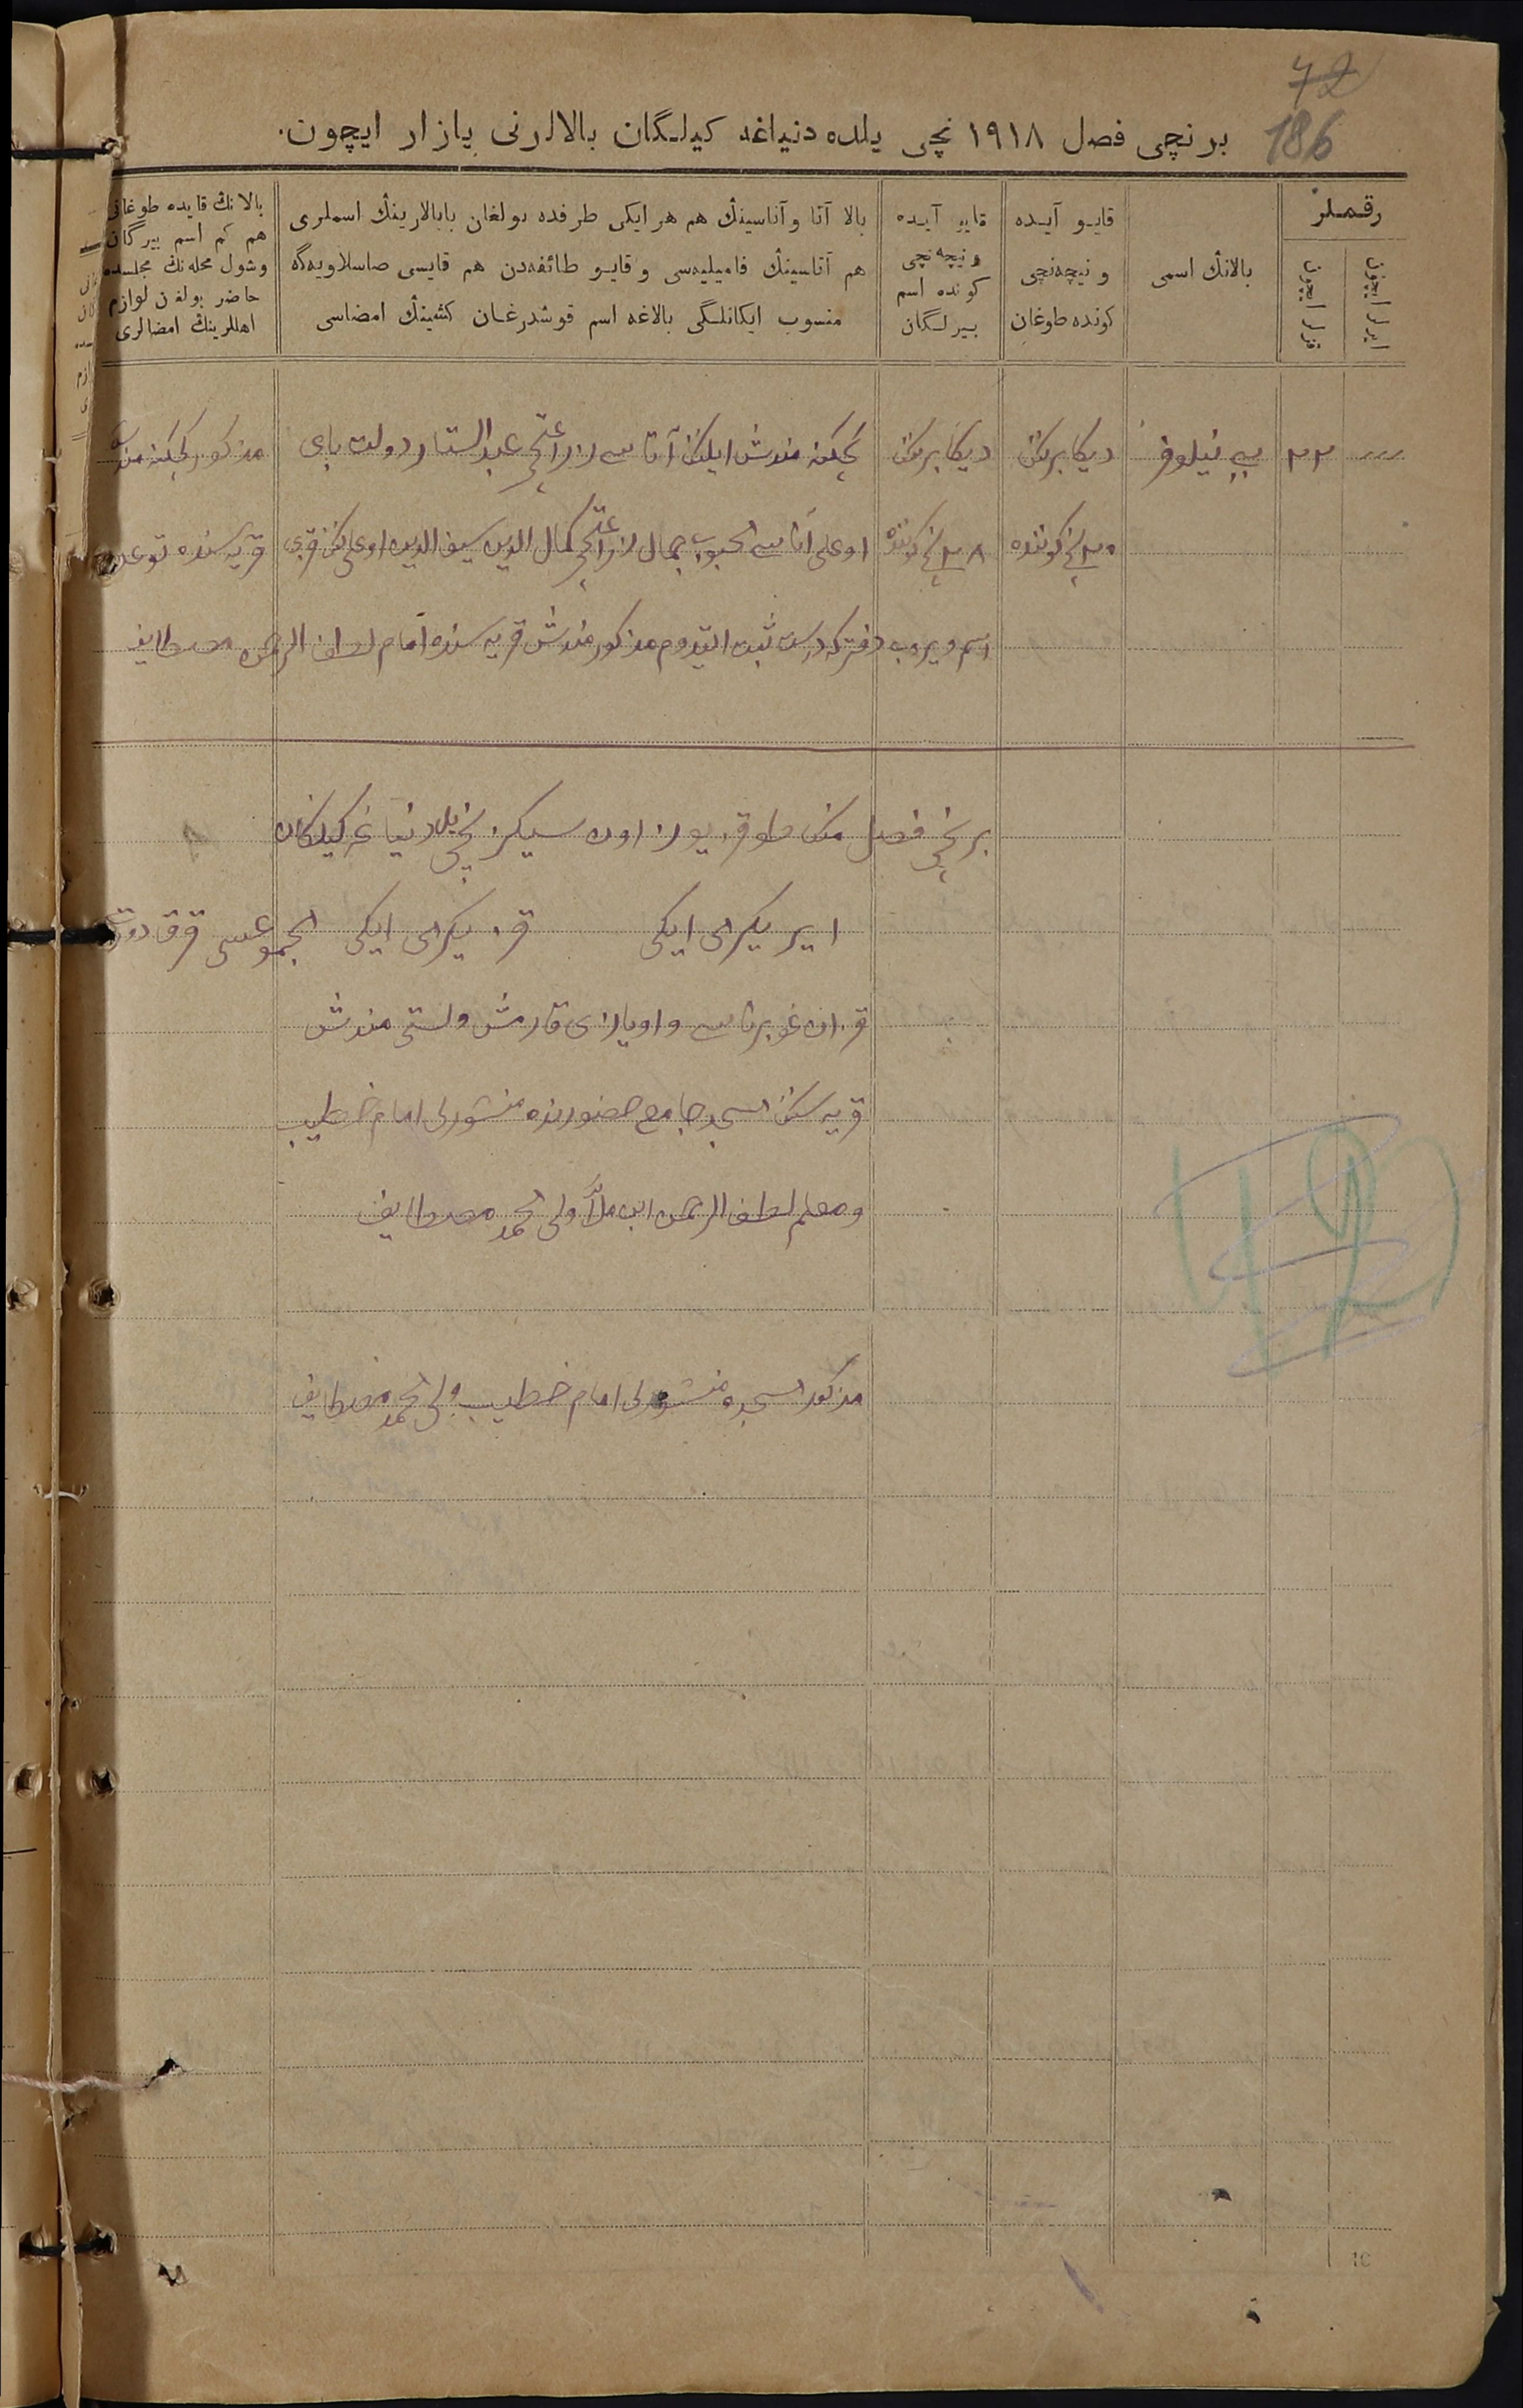 72
186
برنچی فصل ١٩١٨ نچی یلده دنیاغه کیلگان بالالرنی یازار ایچون.
رقملر
ایرلر ایچون
قزلر ایچون
بالانڭ اسمی
قایو آیده
و نیچه‌نچی
کونده طوغان
قایو آیده
و نیچه‌نچی
کونده اسم
بیرلگان
بالا آتا و آناسینڭ هم هر ایکی طرفده بولغان بابالارینڭ اسملری
هم آتاسینڭ فامیلیه‌سی و قایو طائفه‌دن هم قایسی صاسلاویه‌گه
منسوب ایکانلگی بالاغه اسم قوشدرغان کشینڭ امضاسی
بالانڭ قایده طوغانی
هم کم اسم بیرگان
وشول محله‌نڭ مجلسده
حاضر بولغن لوازم
اهللرینڭ امضالری
٢٢ بی نیلوفر دیکابرنڭ دیکابرنڭ کچکنه مندش ایلنڭ آتاسی عبدالستار دولت بای مذکور کچکنه مندش
٢٠ نچی کونده ٢٨ نچی کونده اوغلی آناسی محبوب جمال کمال الدین سیف الدین اوغلی نڭ قزی قریه سنده توغدی
اسم ویروب دفترکه درست ثبت ایتدوم مذکور مندش قریه سنده امام لطف الرحمن مصطایف
برنچی فصل منڭ طوقز یوز اون سیکزنچی یلده دنیاغه کیلکان
ایر یکرمی ایکی قز یکرمی ایکی المجموعسی قرق دورت
قزان غوبرناسی و اویازی قارمش ولستی مندش
قریه سنڭ مسجد جامع حضورنده منشورلی امام خطیب
و معلم لطف الرحمن ابن ملا ولی محمد مصطایف
مذکور مسجده منشورلی امام خطیب ولی محمد مصطایف
10